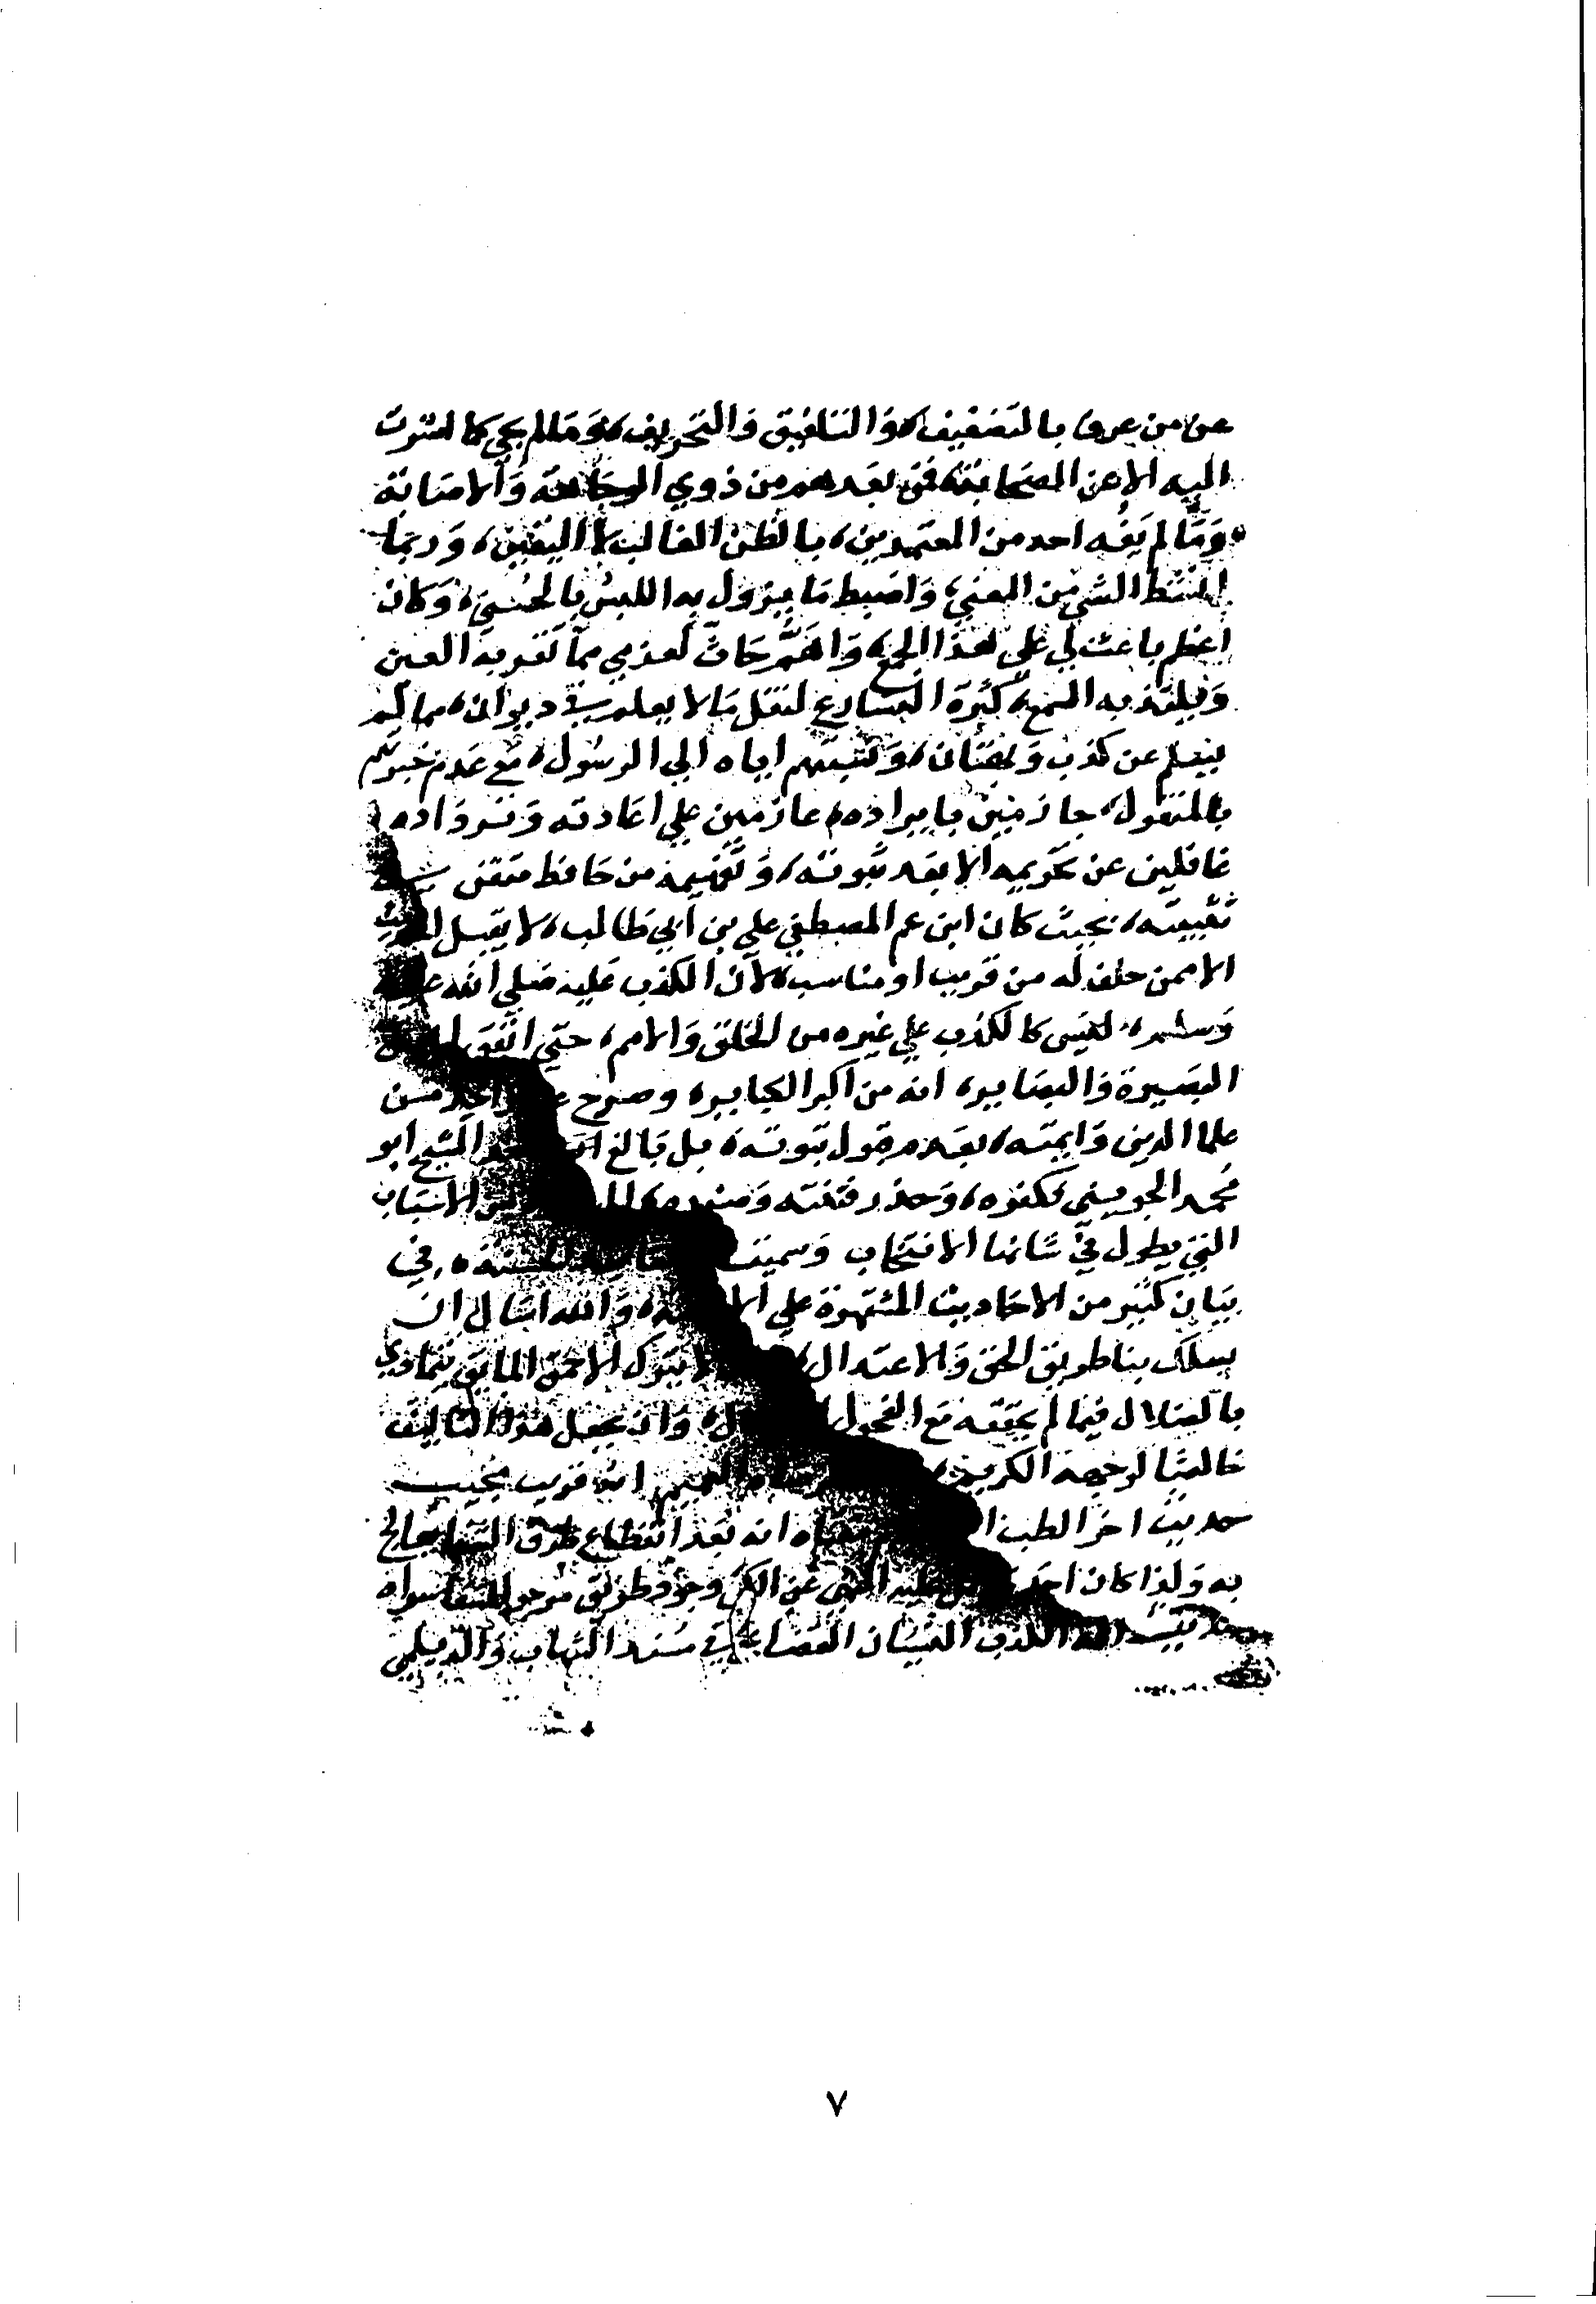 عن من عرف بالتضعيف، والتلفيق والتحريف، وما لم يجئ كما اشرت
اليه الا عن الصحابة، فمن بعدهم من ذوي الرجاحة والاصابة
وما لم يفه احد من المعتمدين، بالظن الغالب لا اليقين، وربما
الشئ من المعني، واضبط ما يزول به اللبس بالحسني، وكان
اعظم باعث لي علي هذا الجمع، واهم حاث لعزمي مما تقر به العين
ويلتذ به السمع، كثرة التسارع لنقل ما لا يعلم في ديوان، مما لم
ينعلم عن كذب وبهتان، ونسبتهم اياه الي الرسول، مع عدم خبرتهم
بالمنقول، جازمين بايراده، عازمين علي اعادته وترداده
غافلين عن تحريمه الا بعد ثبوته، وتفهيمه من حافظ متقن
تثبيته، بحيث كان ابن عم المصطفي علي بن ابي طالب، لا يقبل الحديث
الا ممن حلف له من قريب او مناسب، لان الكذب عليه صلي الله عليه
وسلم، ليس كالكذب علي غيره من الخلق والامم، حتي اتفق اهل
البصيرة والبصاير، انه من اكبر الكباير، وصرح واحد من
علما الدين وايمته، بعدم قبول توبته، بل بالغ الشيخ ابو
محمد الجويني فكفره، وحذر فتنته وضرره، الاسباب
التي يطول في شانها الانتخاب وسميته المقاصد الحسنه، في
بيان كثير من الاحاديث المشتهرة علي الالسنه، والله اسال ان
يسلك بنا طريق الحق والاعتدال، ولا يترك الاحمق المايق يتمادي
بالضلال فيما لم يحققه مع الفحول وان يجعل هذا التاليف
خالصا لوجهه الكريم، انه قريب مجيب
حديث اخر الطب الكي معناه انه بعد انقطاع طرق الشفا يعالج
به ولذا كان احد عليه النهي عن الكي وجود طريق مرجو للشفا سواه
الكذب النسيان القضاعي في مسند الشهاب والديلمي
٧